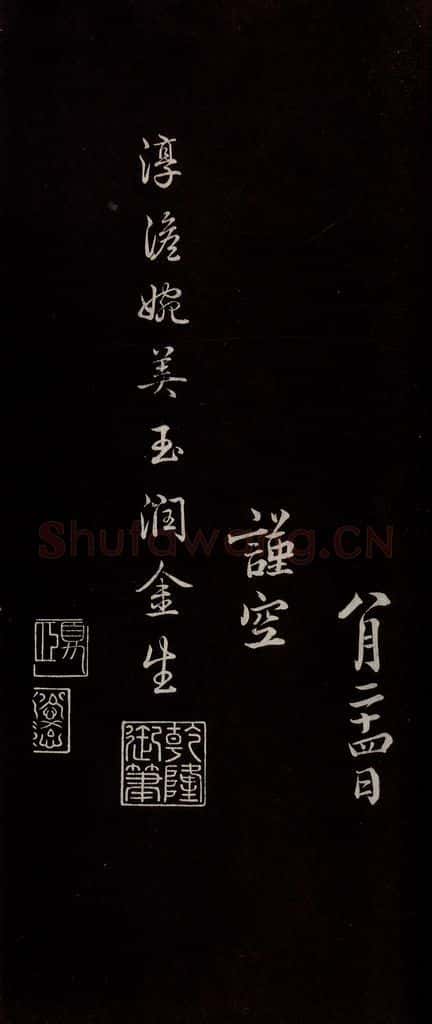 八月二十四日
謹空
淳澹婉美玉润金生
乾隆御筆
Shufawang.CN